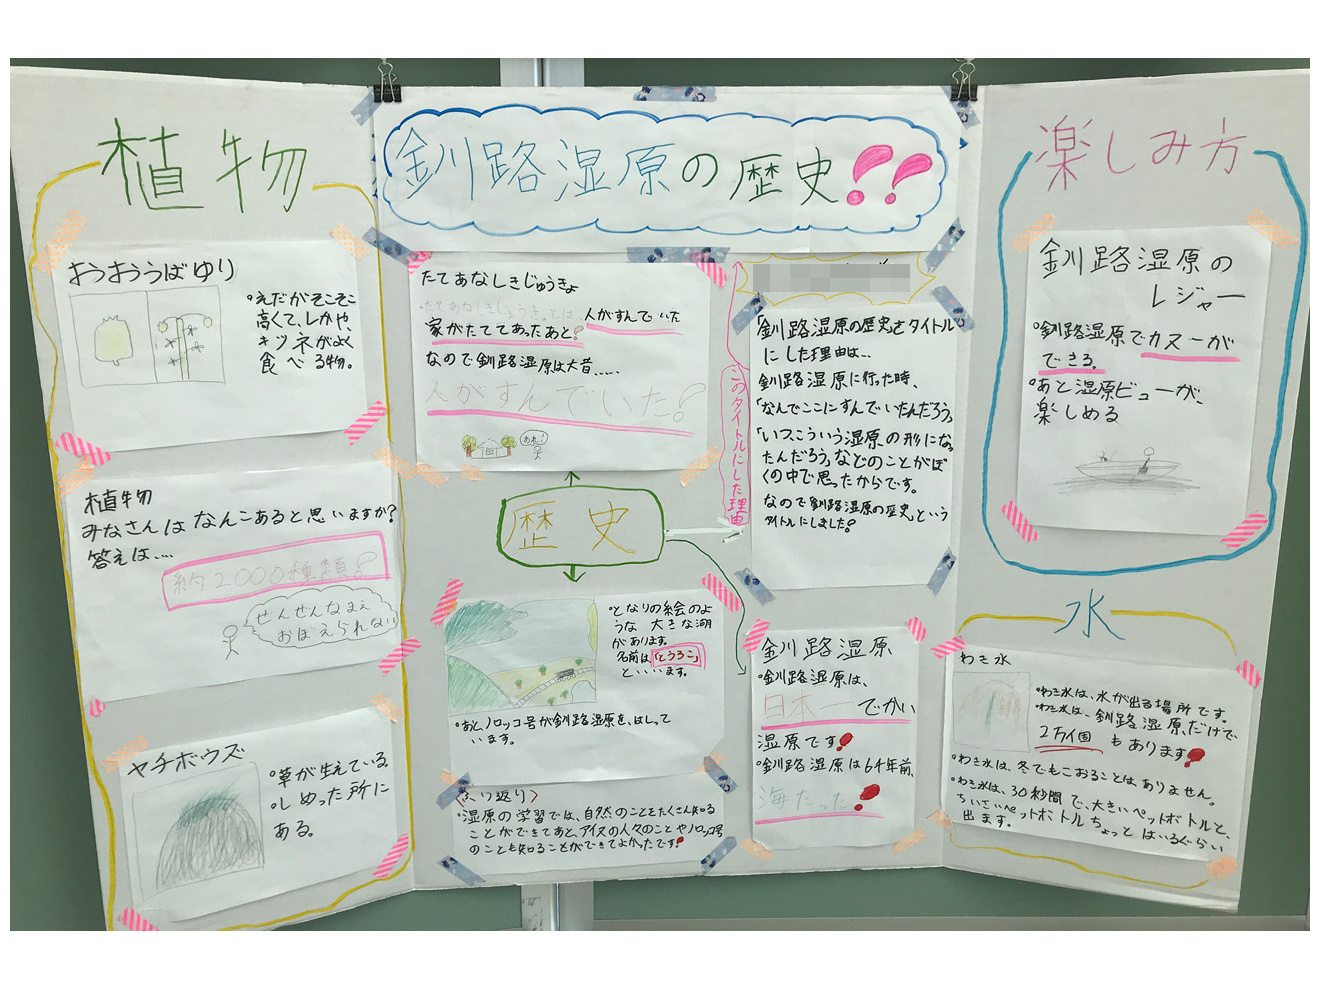 植物
おうおううばゆり
・えだがそこそこ
高くて、しかや、
キツネがよく
食べる物。
植物
みなさんはなんこあると思いますか?
答えは....
約2000種類!
せんぜんなまえ
おぼえられない
ヤチボウズ
・草が生えている
・しめった所に
ある。
釧路湿原の歴史!?
たてあなしきじゅうきょ
・たてあなしきじゅうきょとは、人がすんでいた
家がたててあったあと!
なので釧路湿原は大昔......
人がすんでいた!
あれ!
歴史
このタイトルにした理由
「釧路湿原の歴史をタイトル
にした理由は...
釧路湿原に行った時、
「なんでここにすんでいたんだろう」
「いつ、こういう湿原の形になっ
たんだろう」などのことがぼ
くの中で思ったからです。
なので「釧路湿原の歴史」という
タイトルにしました!
となりの絵のよ
うな 大きな湖
があります。
名前は「とうろこ」
といいます。
・あと、ノロッコ号が釧路湿原を、はしって
います。
〈ふり返り〉
・湿原の学習では、自然のことをたくさん知る
ことができてあと、アイヌの人々のことやノロッコ号
のことも知ることができてよかったです!
釧路湿原
・釧路湿原は、
日本一でかい
湿原です!
・釧路湿原は6千年前、
海だった!
楽しみ方
釧路湿原の
レジャー
・釧路湿原でカヌーが
できる。
・あと湿原ビューが、
楽しめる
水
わき水
・わき水は、水が出る場所です。
・わき水は、釧路湿原だけで
2万个国もあります!
・わき水は、冬でもこおることはありません。
・わき水は、30秒間で、大きいペットボトルと、
ちいさいペットボトルちょっとはいるぐらい
出ます。